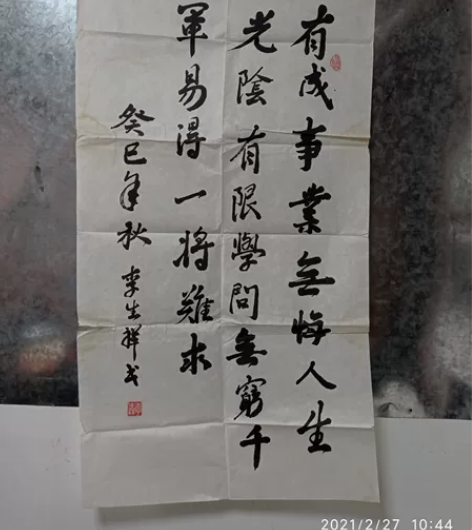 有成事業無悔人生
光陰有限學問無窮千
軍易得一將難求
癸巳年秋 李生祥书
2021/2/27 10:44